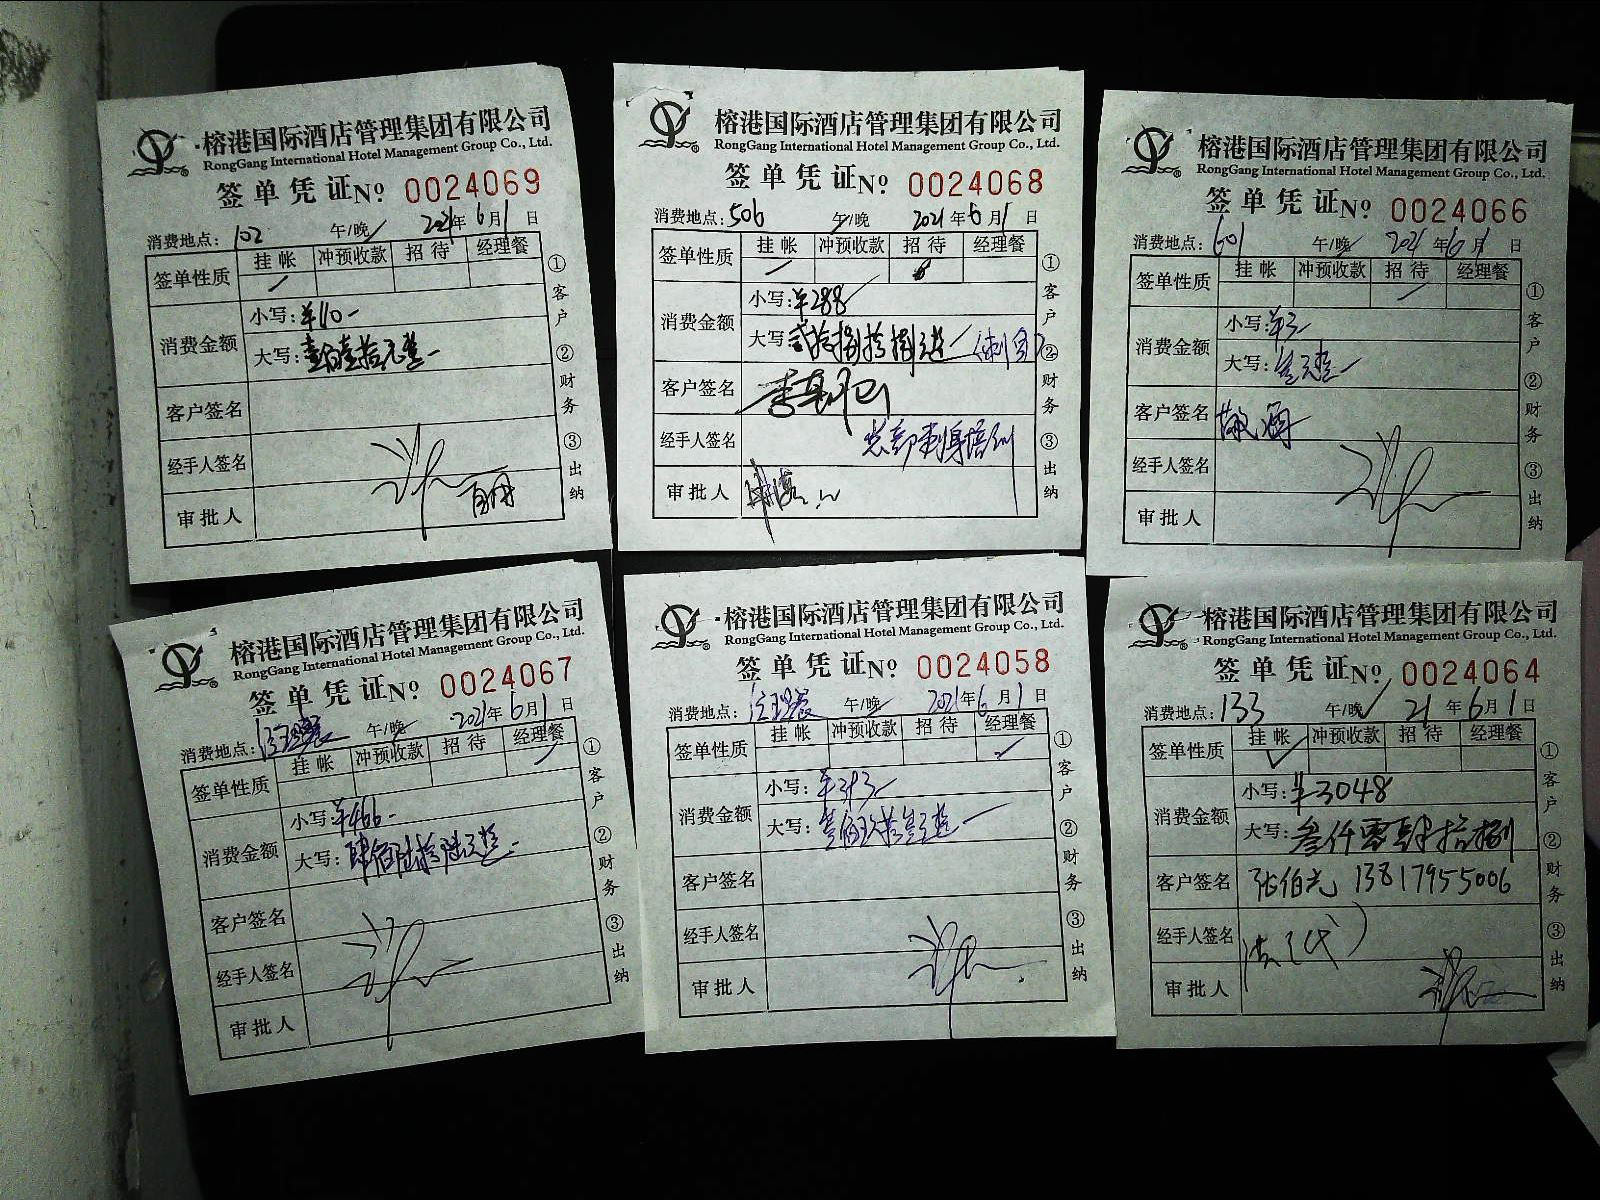 榕港国际酒店管理集团有限公司
RongGang International Hotel Management Group Co., Ltd.
签单凭证№ 0024069
消费地点：102 午/晚 2021年6月1日
签单性质 挂帐 冲预收款 招待 经理餐
消费金额 小写：¥110-
大写：壹佰壹拾元整
客户签名
经手人签名
审批人
①客户 ②财务 ③出纳
榕港国际酒店管理集团有限公司
RongGang International Hotel Management Group Co., Ltd.
签单凭证№ 0024068
消费地点：506 午/晚 2021年6月1日
签单性质 挂帐 冲预收款 招待 经理餐
消费金额 小写：¥288
大写：贰佰捌拾捌元整
客户签名
经手人签名 总部刺身培训
审批人
①客户 ②财务 ③出纳
榕港国际酒店管理集团有限公司
RongGang International Hotel Management Group Co., Ltd.
签单凭证№ 0024066
消费地点：601 午/晚 2021年6月1日
签单性质 挂帐 冲预收款 招待 经理餐
消费金额 小写：¥3
大写：叁元整
客户签名
经手人签名
审批人
①客户 ②财务 ③出纳
榕港国际酒店管理集团有限公司
RongGang International Hotel Management Group Co., Ltd.
签单凭证№ 0024067
消费地点： 午/晚 2021年6月1日
签单性质 挂帐 冲预收款 招待 经理餐
消费金额 小写：¥466-
大写：肆佰陆拾陆元整
客户签名
经手人签名
审批人
①客户 ②财务 ③出纳
榕港国际酒店管理集团有限公司
RongGang International Hotel Management Group Co., Ltd.
签单凭证№ 0024058
消费地点： 午/晚 2021年6月1日
签单性质 挂帐 冲预收款 招待 经理餐
消费金额 小写：¥393
大写：叁佰玖拾叁元整
客户签名
经手人签名
审批人
①客户 ②财务 ③出纳
榕港国际酒店管理集团有限公司
RongGang International Hotel Management Group Co., Ltd.
签单凭证№ 0024064
消费地点：133 午/晚 21年6月1日
签单性质 挂帐 冲预收款 招待 经理餐
消费金额 小写：¥3048
大写：叁仟零肆拾捌
客户签名 张伯光 13817955006
经手人签名
审批人
①客户 ②财务 ③出纳